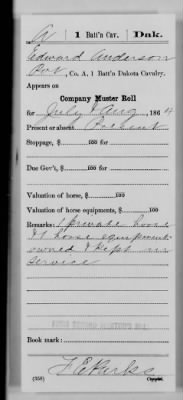 A | 1 Batt'n Cav. | Dak.
Edward Anderson
Pvt, Co. A, 1 Batt'n Dakota Cavalry.
Appears on
Company Muster Roll
for July & Aug, 1864
Present or absent Present
Stoppage, $ 100 for
Due Gov't, $ 100 for
Valuation of horse, $ 100
Valuation of horse equipments, $ 100
Remarks: 1 private horse
& 1 horse equipments
owned & kept in
service
Book mark:
F E Parks
(358) Copyist.